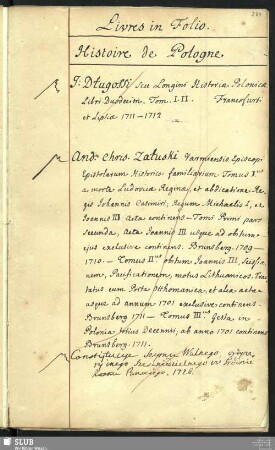 Livres in Folio.
Histoire de Pologne
J. Długossi seu Longini Historiæ Polonicæ
Libri Duodecim Tom. I. II. Francofurti
et Lipsiæ 1711-1712
And. Chris. Załuski Varmiensis Episcopi
Epistolarum Historico familiarium Tomus I mus
a morte Ludovicæ Reginæ et abdicatione Re-
gis Johannis Casimiri, Regum Michaelis I, et
Joannis III Acta continens - Tomi Primi pars
secunda, Acta Joannis III usque ad obitum
ejus exclusive continens. Brunsberg. 1709-
1710. - Tomus II obitum Joannis III,
nem, Pacificationem, motus Lithuanicos, Trac-
tatus cum Porta Othomanica, et alia acta
usque ad annum 1701 exclusive continens.
Brunsberg 1711 - Tomus III Gesta in
Polonia totius Decennii, ab anno 1701 continens
Brunsberg. 1711.
Constytucye Seymu Walnego,
1726.
SLUB